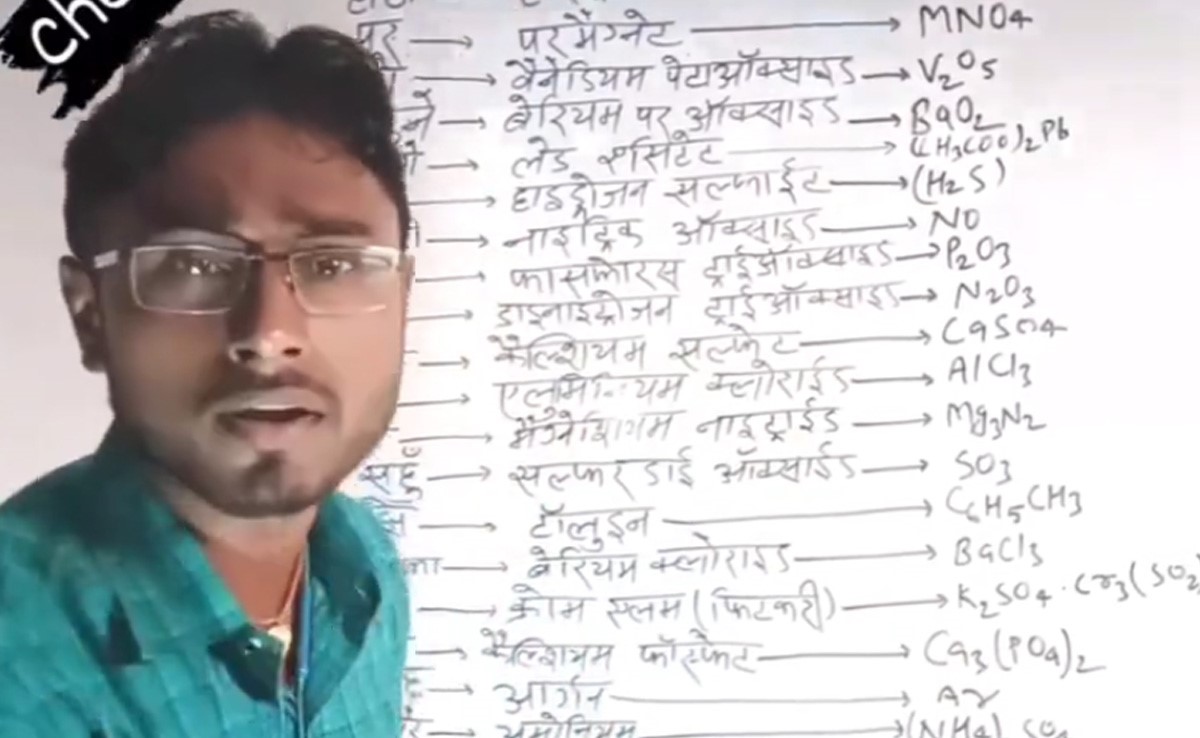 cho
पर → परमैग्नेट → MNO4
→ वैनेडियम पेंटाऑक्साइड → V2O5
→ बेरियम पर ऑक्साइड → BaO2
→ लेड एसिटेट → (CH3COO)2Pb
→ हाइड्रोजन सल्फाईट → (H2S)
→ नाइट्रिक ऑक्साइड → NO
→ फासफोरस ट्राईऑक्साइड → P2O3
→ डाइनाइट्रोजन ट्राईऑक्साइड → N2O3
→ कैल्शियम सल्फेट → CaSO4
→ एलुमिनियम क्लोराईड → AlCl3
→ मैग्नेशियम नाइट्राईड → Mg3N2
सहुँ → सल्फर डाई ऑक्साईड → SO3
→ टॉलुइन → C6H5CH3
→ बेरियम क्लोराइड → BaCl3
→ क्रोम एलम (फिटकरी) → K2SO4·Cr3(SO2
→ कैल्शियम फॉस्फेट → Ca3(PO4)2
→ आर्गन → Ar
→ अमोनियम → (NH4) SO4